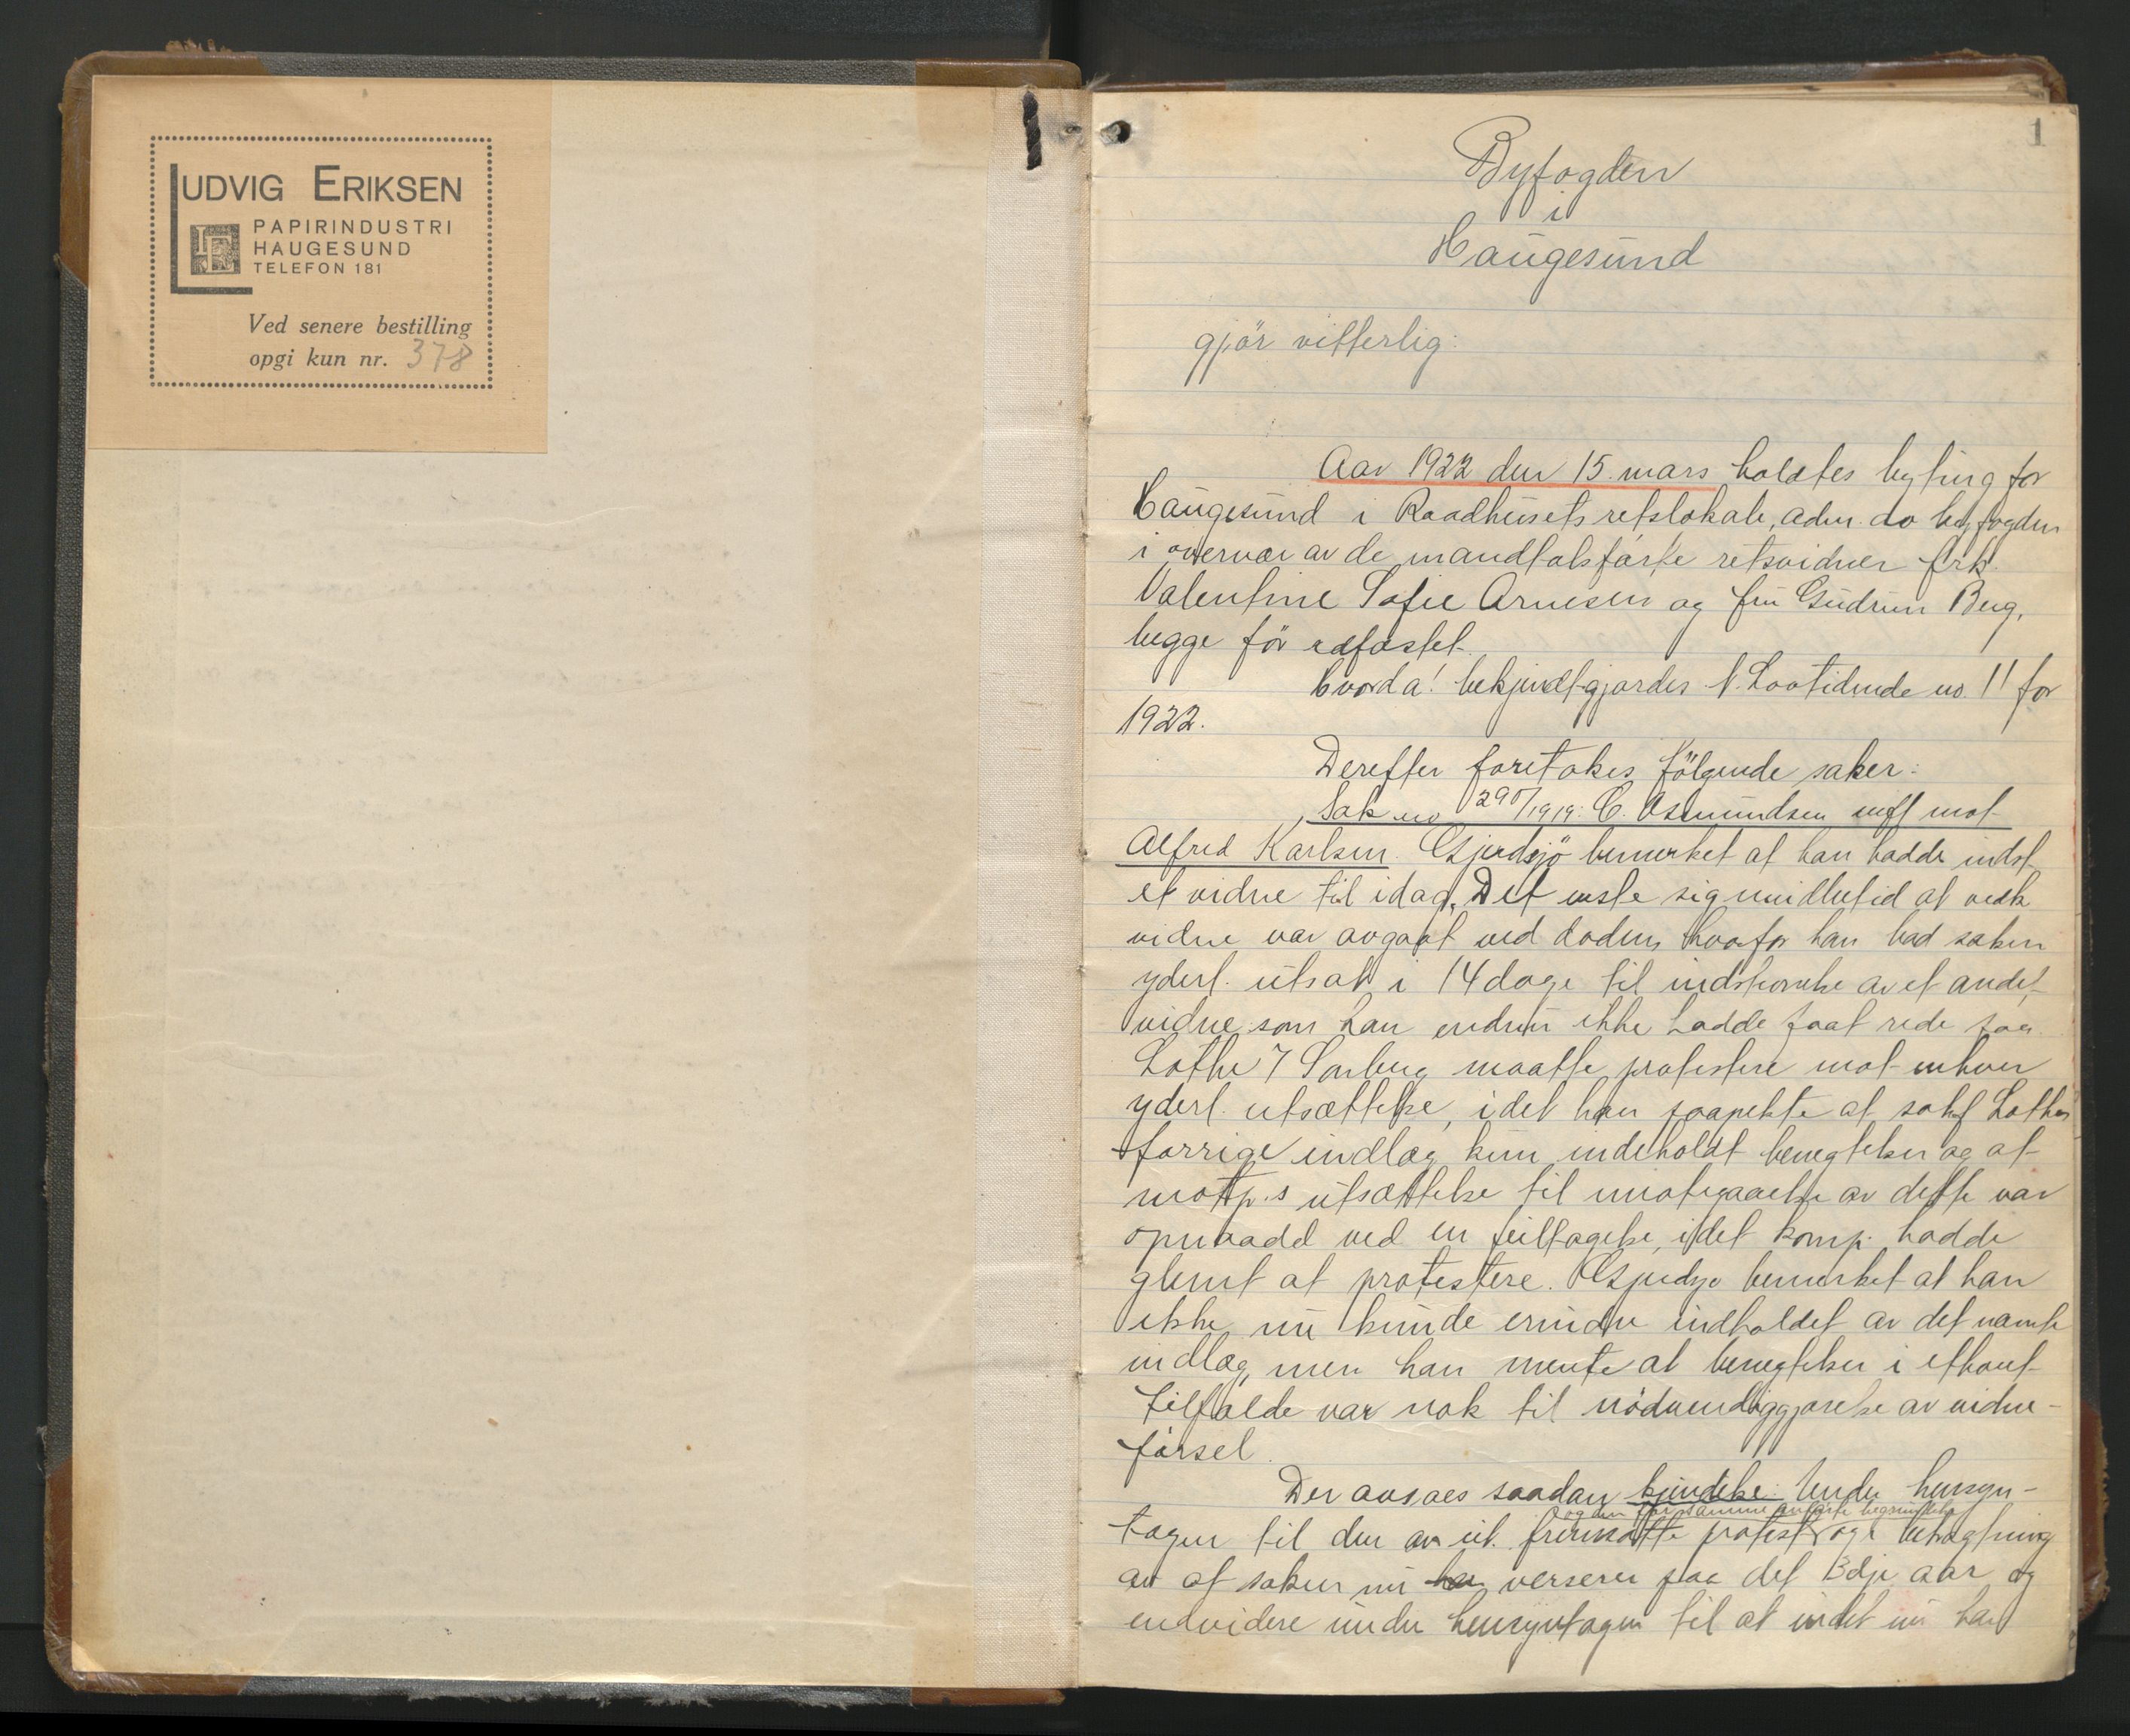 LUDVIG ERIKSEN
PAPIRINDUSTRI
HAUGESUND
TELEFON 181
Ved senere bestilling
opgi kun nr. 378
1
Byfogden
i
Haugesund
gjör vitterlig:
Aar 1922 den 15. mars holdtes byting for
Haugesund i Raadhusets retslokale, adm. av byfogden
i overvær av de mandtalsførte retsvidner frk.
Valentine Sofie Arnesen og fru Gudrun Berg,
begge før edfæstet.
Hvorda! bekjendtgjordes N. Lovtidende no. 11 for
1922.
Derefter foretokes fölgende saker:
Sak no 290/1919: C. Asmundsen mot
Alfred Karlsen. Gjerdsjö bemerket at han hadde indst.
et vidne til idag. Det viste sig imidlertid at vedk.
vidne var avgaat ved døden, hvorfor han bad saken
yderl. utsat i 14 dage til indstevnelse av et andet
vidne som han endnu ikke hadde faat rede paa.
Lothe / Sørberg maatte protestere mot enhver
yderl. utsættelse, idet han paapekte at sakf. Lothes
forrige indlæg kun indeholdt benegtelser og at
motp.s utsættelse til imøtegaaelse av dette var
opnaadd ved en feiltagelse, idet komp. hadde
glemt at protestere. Gjerdsjø bemerket at han
ikke nu kunde erindre indholdet av det nævnte
indlæg, men han mente at benegtelser i ethvert
tilfælde var nok til nødvendiggjørelse av vidne-
førsel.
Der avsaes saadan kjendelse: Under hensyn-
og den for samme anførte begrundelse
tagen til den av cit. fremsatte protest og i betragtning
av at saken nu verserer paa det 3dje aar og
endvidere under hensyntagen til at intet nu har